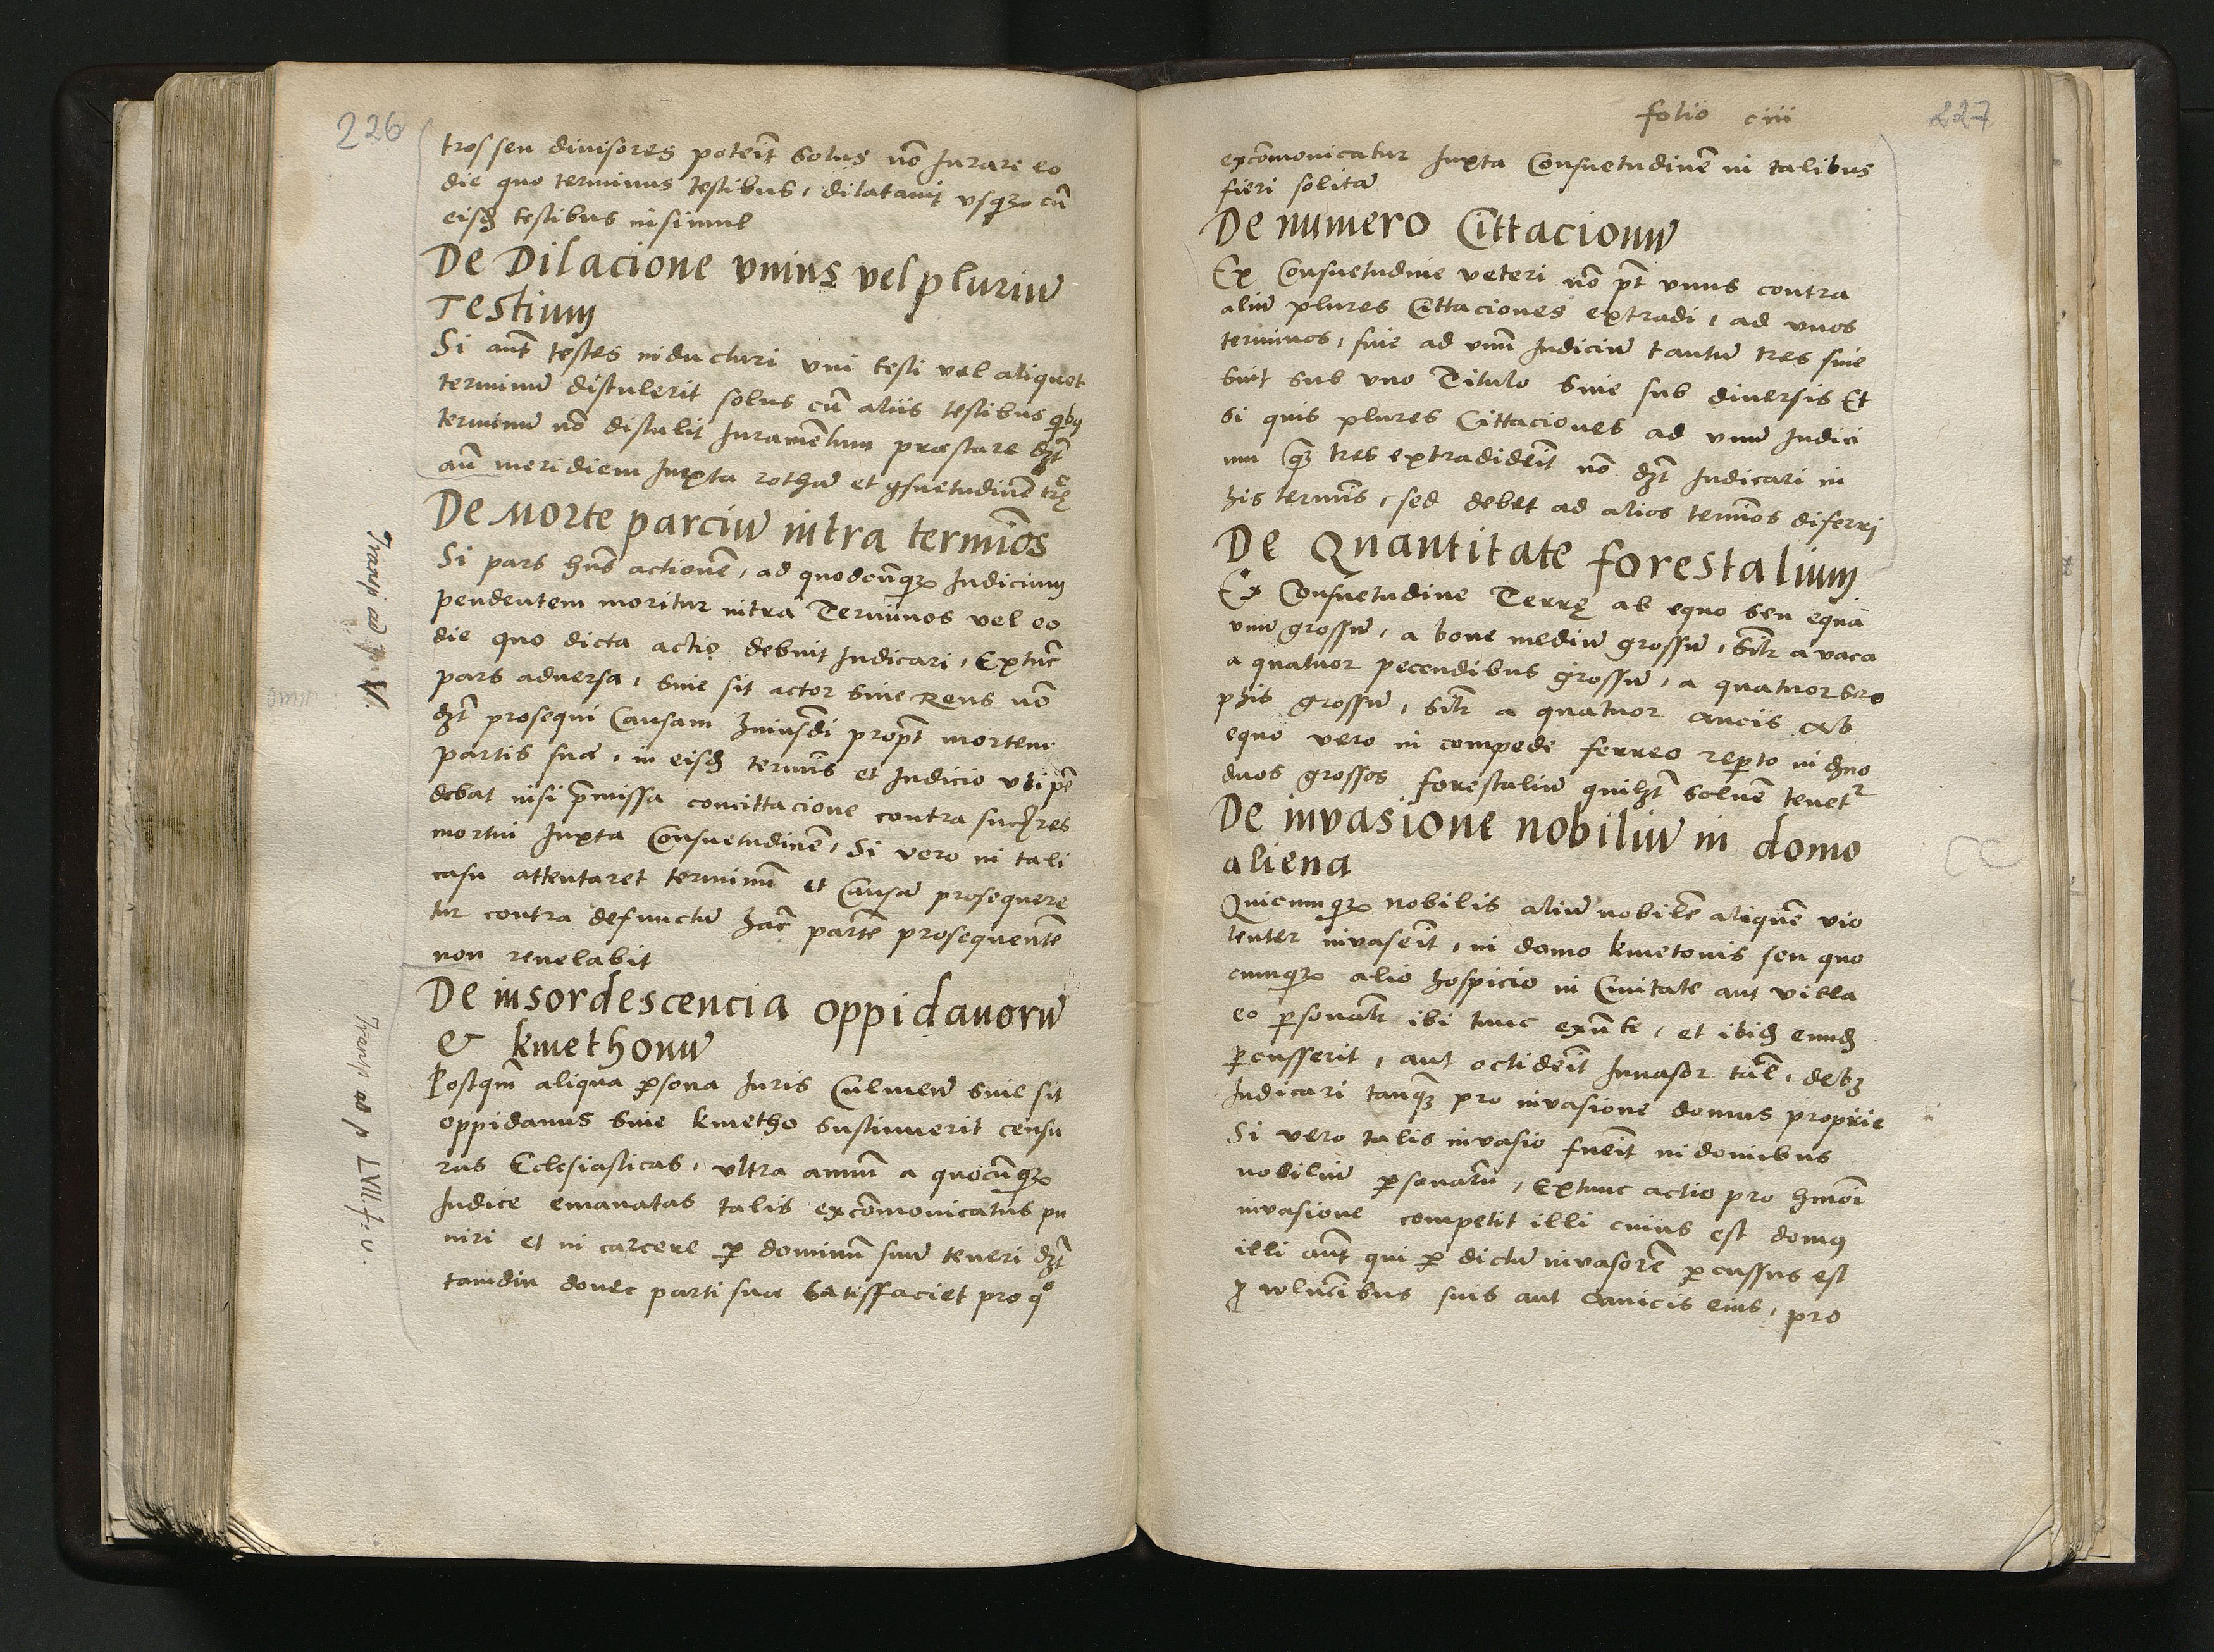 226
tros seu divisores poterit solus nõ Jurare eo
die quo terminus testibus, dilatavit usq; cũ
eisdẽ testibus insimul
De Dilacione unius vel pluriũ
Testium
Si aut̃ testes inducturi uni testi vel aliquot
terminũ distulerit solus cũ aliis testibus q̃bus
terminũ nõ distulit Juramẽtum præstare dz̃t
añ meridiem Juxta rothã et ɔsuetudinẽ tr̃ę
De Morte parciũ intra termĩos
Si pars hñs actionẽ, ad quodcũq; Judicium
pendentem moritur intra Terminos vel eo
die quo dicta actio debuit Judicari, Extũc
pars adversa, sive sit actor sive Reus nõ
dz̃t prosequi Causam huiusdĩ propt̃ mortem
partis suæ, in eisdẽ termĩs et Judicio uti pẽ
debat nisi p̃missa concittacione contra succ̃res
mortui Juxta Consuetudinẽ, Si vero in tali
casu attentaret terminũ et Causã prosequere
tur contra defunctũ hãc partẽ prosequentẽ
non relevabit
De insordescencia oppidanorũ
& kmethonũ
Postqm̃ aliqua p̱sona Juris Culmen̄ sive sit
oppidanus sive kmetho sustinuerit censu
ras Eclesiasticas, ultra annũ a quocũq;
Judice emanatas talis excõmonicatus pu
niri et in carcere p̱ dominũ suũ teneri dz̃t
tamdiu donec parti suæ satisffaciet pro qͦ
Transp ad p LVII f: v.
folio ciii
227
excõmonicatur Juxta Consuetudinẽ in talibus
fieri solitã
De numero Cittacionũ
Ex Consuetudine veteri nõ p̃t unus contra
aliũ plures Cittaciones extradi, ad unos
terminos, sive ad unũ Judiciũ tantũ tres sive
sint sub uno Titulo sive sub diversis Et
si quis plures Cittaciones ad unũ Judici
um q̃z tres extradiderit nõ dz̃t Judicari in
his termĩs, sed debet ad alios termĩos diferri
De Quantitate forestalium
Ex Consuetudine Terrę ab equo seu equa
unũ grossũ, a bove mediũ grossũ, sĩlr a vaca
a quatuor pecendibus grossũ, a quatuor scro
phis grossũ, sĩlr a quatuor aucis Ab
equo vero in compede ferreo rep̱to in dano
duos grossos forestaliũ quilz̃t solvẽ tenetʳ
De invasione nobiliũ in domo
aliena
Quicumq; nobilis aliũ nobilẽ aliquẽ vio
lenter invaserit, in domo kmetonis seu quo
cumq; alio hospicio in Civitate aut villa
eo p̱sonalr̃ ibi tunc exñte, et ibidẽ eundẽ
p̱cusserit, aut octiderit Invasor tal̃, debz
Judicari tanq̃z pro invasione domus proprie
Si vero talis invasio fuerit in domibus
nobiliũ p̱sonarũ, Extunc actio pro hmõi
invasione competit illi cuius est domus
illi aut̃ qui p̱ dictũ invasorẽ p̱cussus est
p̱ vulneribus suis aut Amicis eius, pro